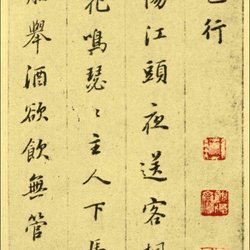 行
陽江頭夜送客
花鳴瑟〻主人下馬
舉酒欲飲無管